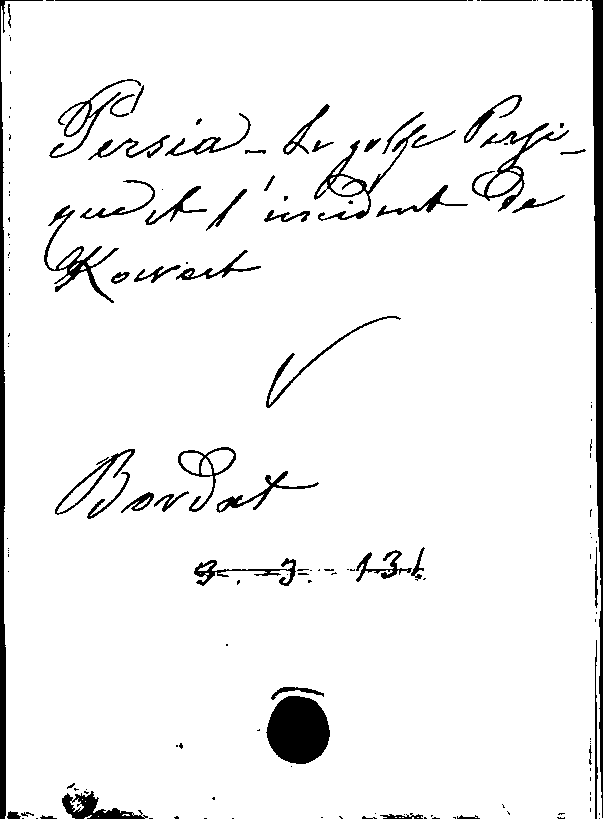 Persia - Le golfe Persi-
que et l'incident de
Koweit
Bordat
3. 3. 131